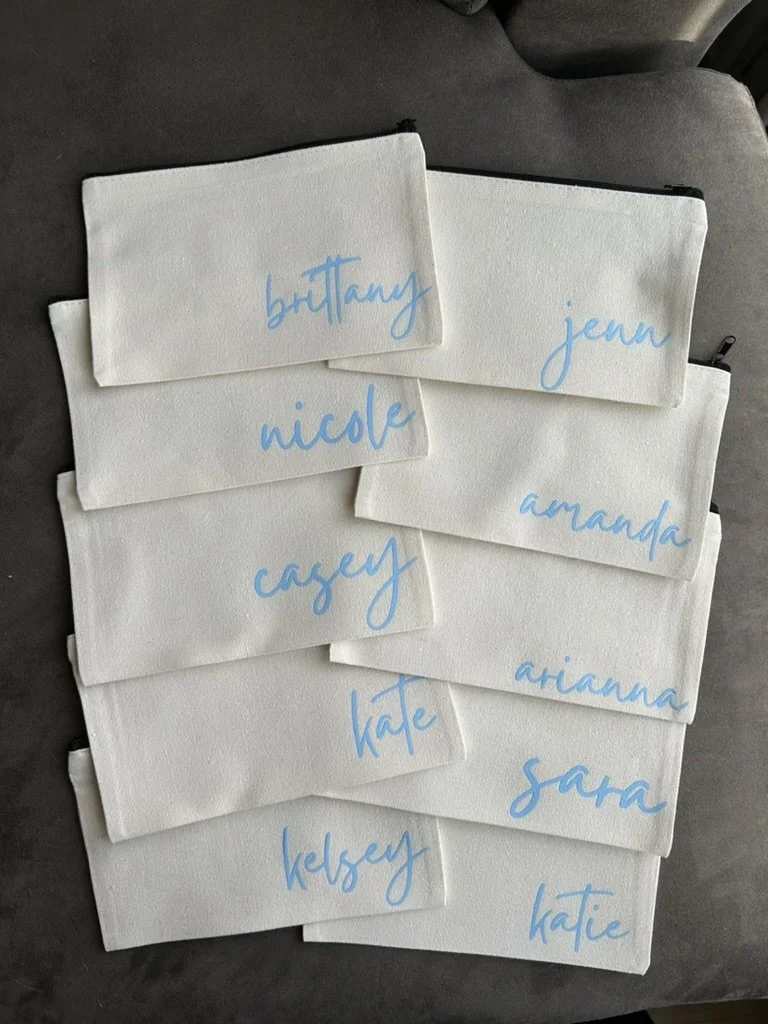 brittany
jenn
nicole
amanda
casey
arianna
kate
sara
kelsey
katie